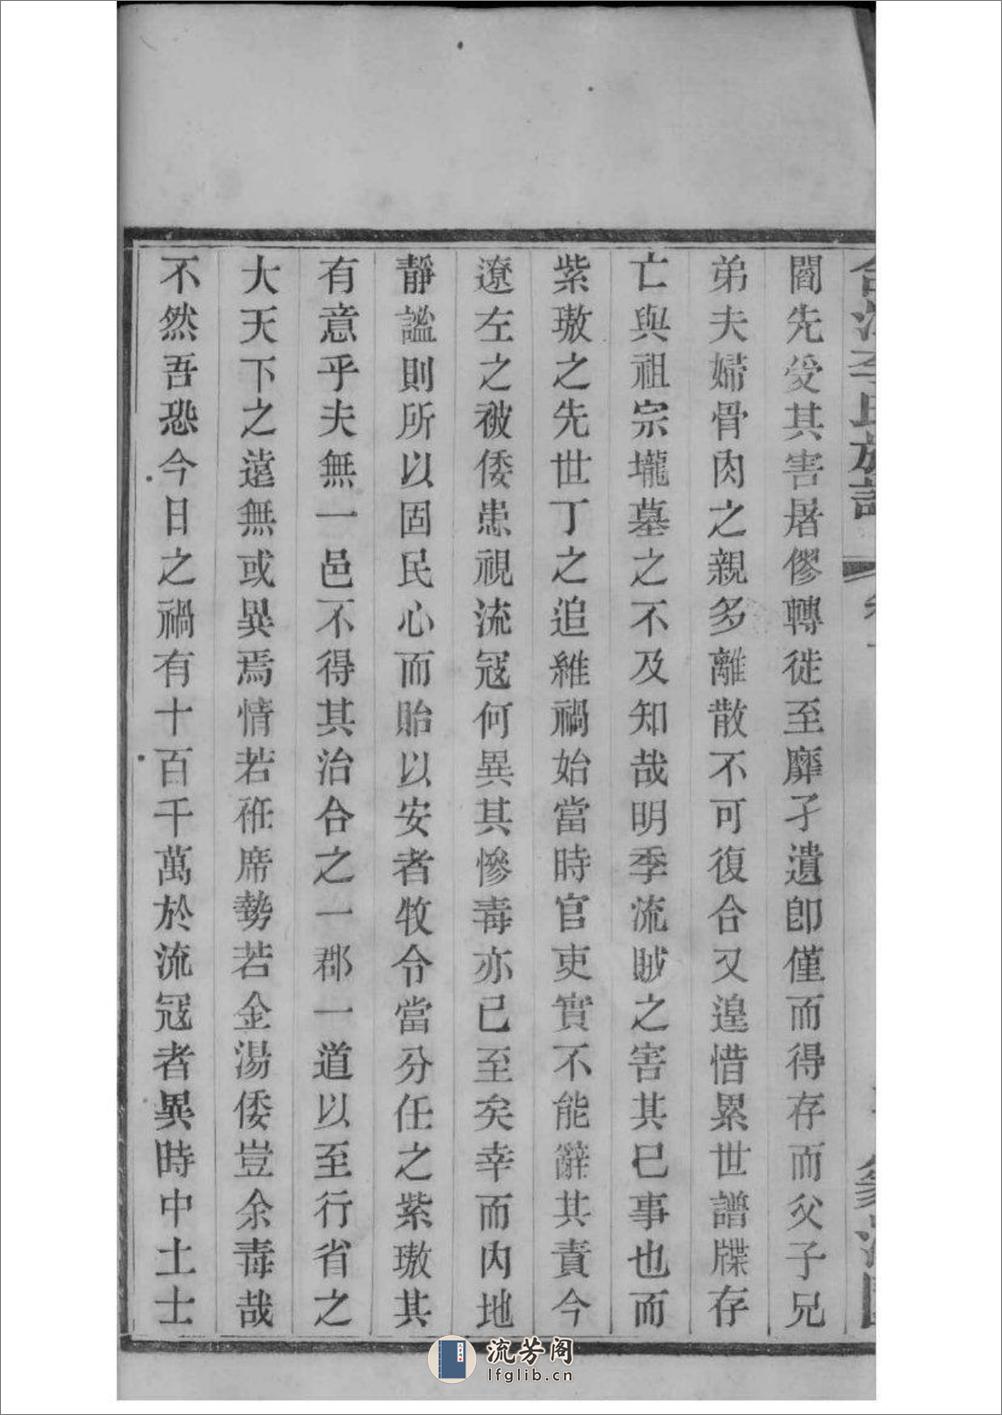 閻先受其害屠僇轉徙至靡孑遺卽僅而得存而父子兄
弟夫婦骨肉之親多離散不可復合又遑惜累世譜牒存
亡與祖宗壠墓之不及知哉明季流賊之害其已事也而
紫璈之先世丁之追維禍始當時官吏實不能辭其責今
遼左之被倭患視流寇何異其慘毒亦已至矣幸而內地
靜謐則所以固民心而貽以安者牧令當分任之紫璈其
有意乎夫無一邑不得其治合之一郡一道以至行省之
大天下之遠無或異焉情若袵席勢若金湯倭豈余毒哉
不然吾恐今日之禍有十百千萬於流寇者異時中土士
流芳阁
lfglib.cn